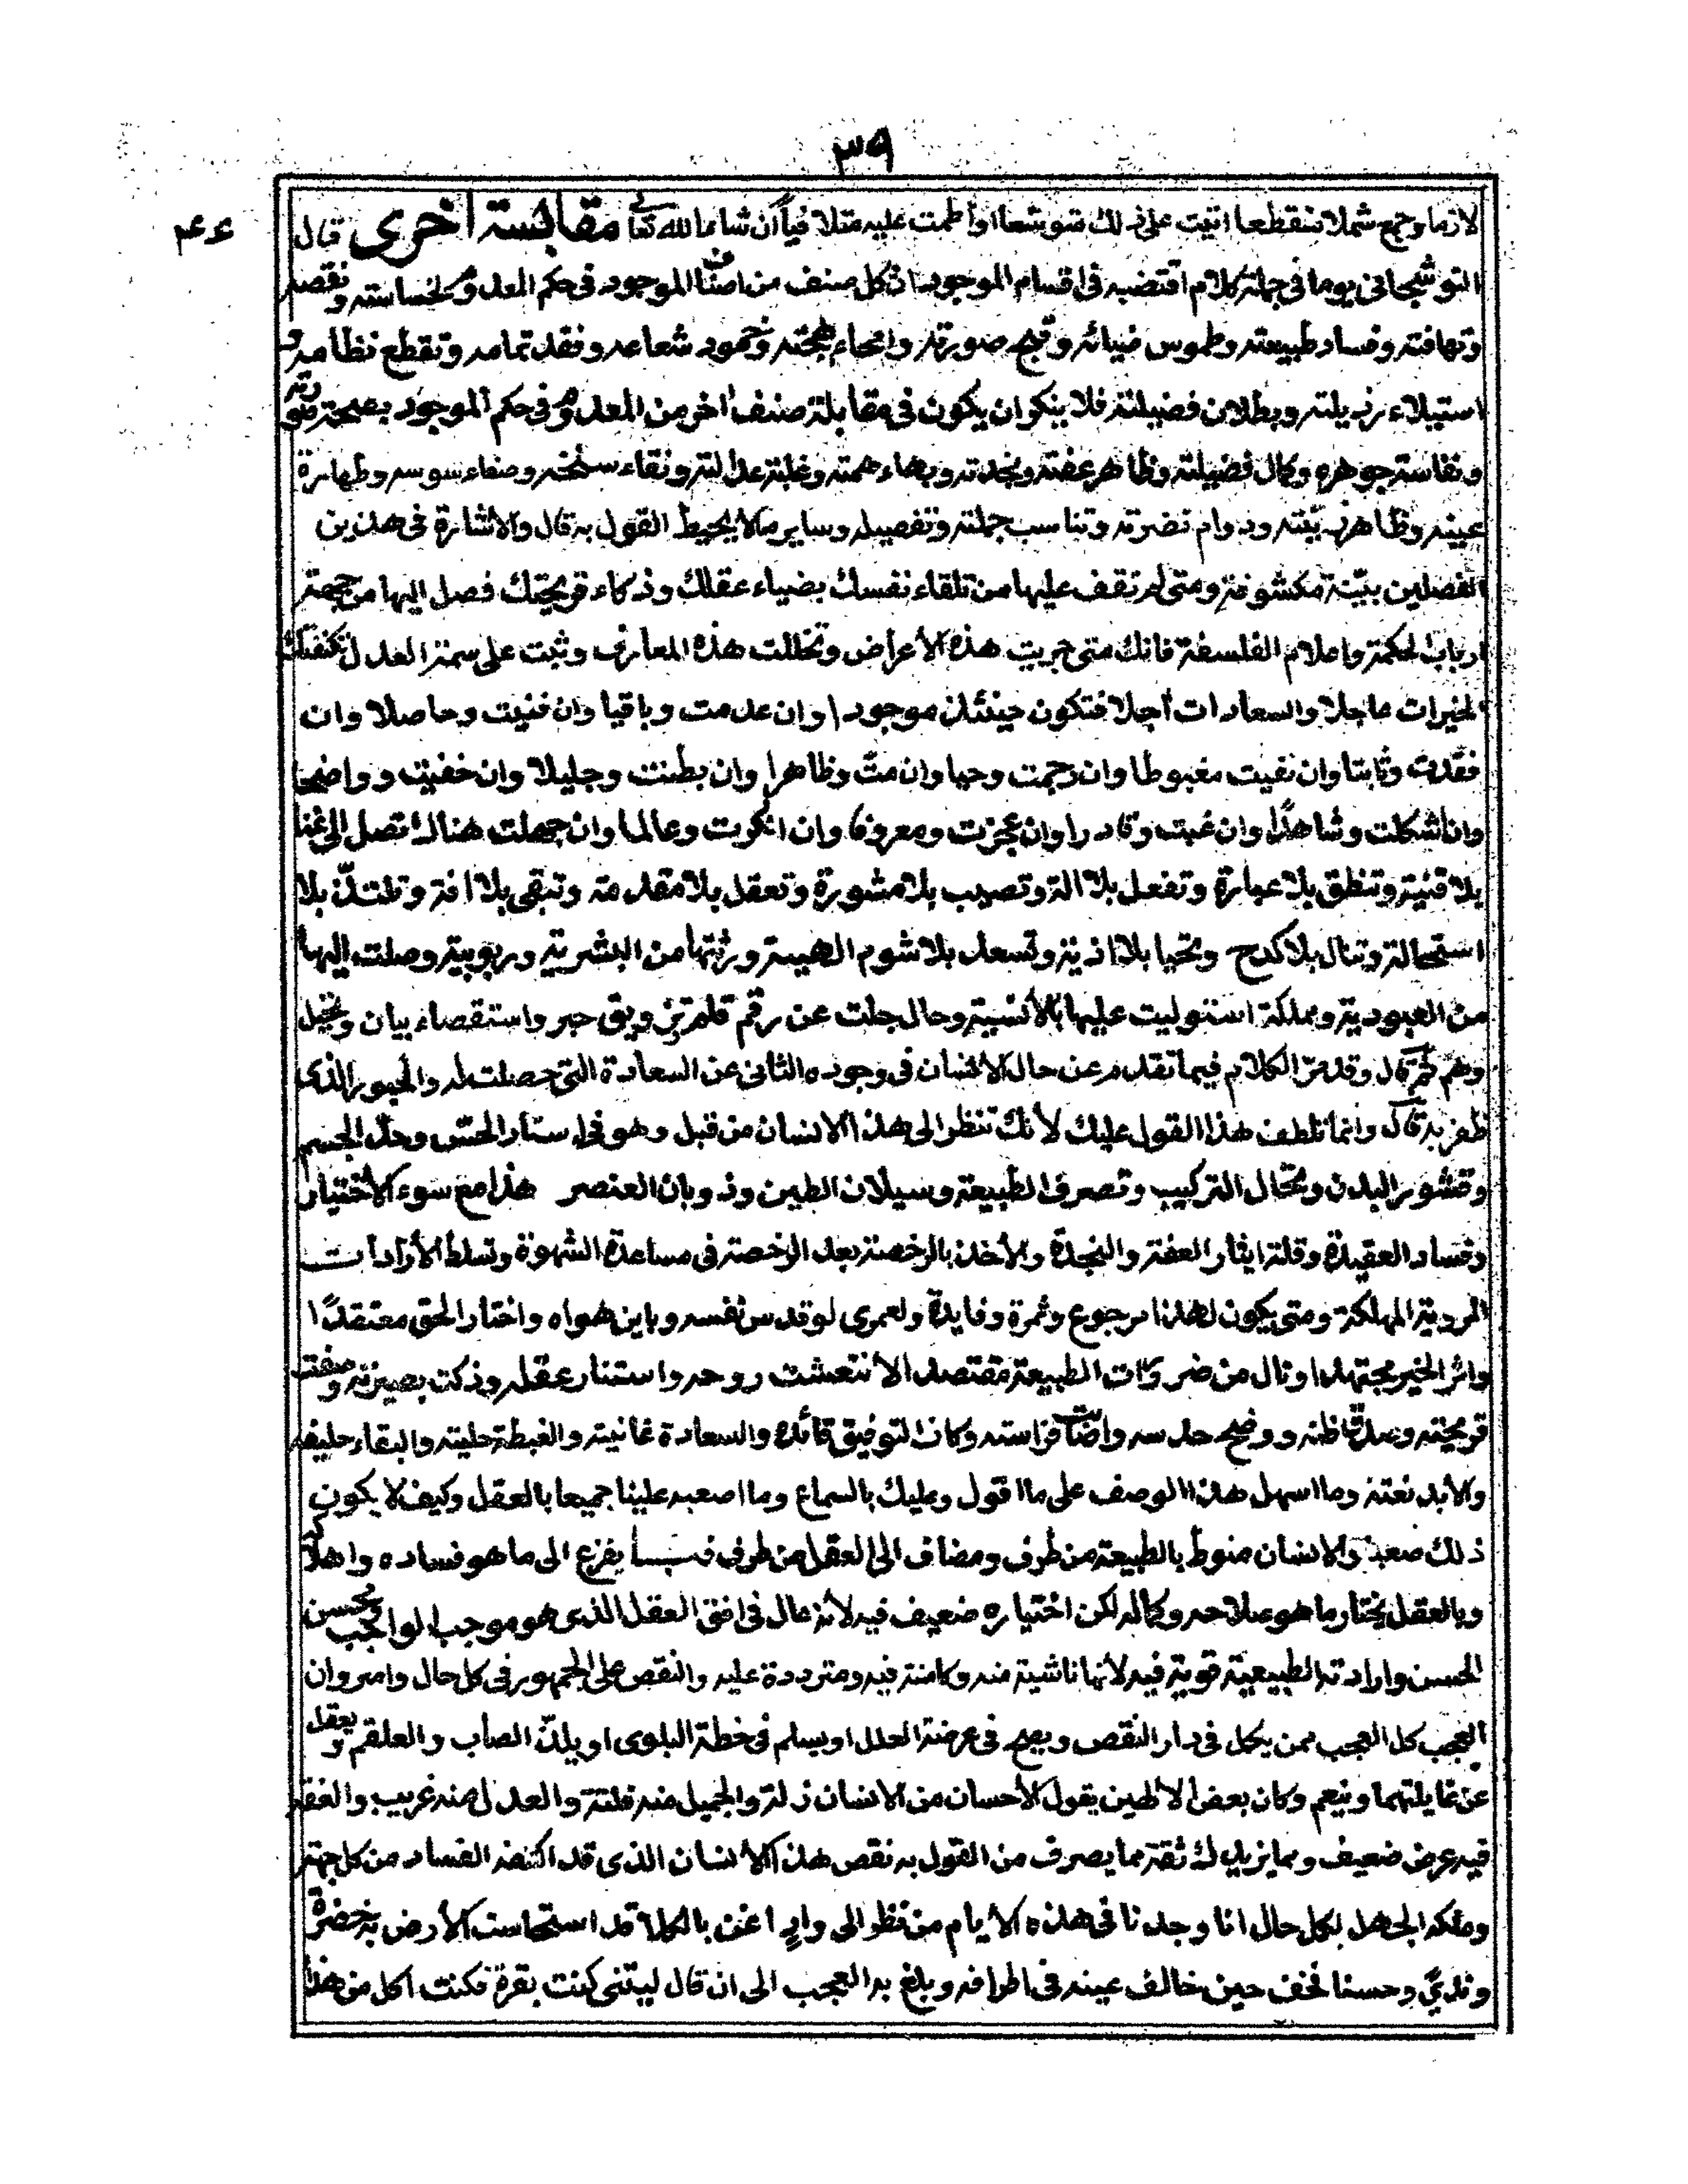 ٣٩
لازما وجمع شملا منقطعا اتيت على ذلك متوشعا او اطمت عليه متلافيا ان شاء الله تعا مقابسة اخرى قال
النوشجانى يوما فى جملة كلام اقتضبه فى اقسام الموجود ان كل صنف من اصناف الموجود فى حكم المعدوم لخساسته ونقصه
وتهافته وفساد طبيعته وطموس ضيائه وقبح صورته وامحاء بهجته وخمود شعاعه وفقد تمامه وتقطع نظامه و
استيلاء رذيلته وبطلان فضيلته فلا ينكر ان يكون فى مقابلة صنف اخر من المعدوم فى حكم الموجود بصحة صورته
ونفاسة جوهره وكمال فضيلته وظاهر عفته ونجدته وبهاء همته وغلبة عدالته ونقاء سنخه وصفاء سوسه وطهارة
عينه وظاهر زينته ودوام نضرته وتناسب جملته وتفصيله وساير مالا يحيط القول به قال والاشارة فى هذين
الفصلين بيّنة مكشوفة ومتى لم تقف عليها من تلقاء نفسك بضياء عقلك وذكاء قريحتك فصل اليها من جهة
ارباب الحكمة واعلام الفلسفة فانك متى حريت هذه الأعراض وتخللت هذه المعارف وثبت على سمة العدل تكنفتك
الخيرات عاجلا والسعادات آجلا فتكون حينئذ موجودا وان عدمت وباقيا وان فنيت وحاصلا وان
فقدت وثابتا وان نفيت مغبوطا وان رحمت وحيا وان متّ وظاهرا وان بطنت وجليلا وان خفيت وواضحا
وان اشكلت وشاهدا وان غبت وقادرا وان عجزت ومعروفا وان انكرت وعالما وان جهلت هناك تصل الى غنا
بلا قنية وتنطق بلا عبارة وتفعل بلا الة وتصيب بلا مشورة وتعقل بلا مقدمة وتبقى بلا افة وتلتذّ بلا
استحالة وتنال بلا كدح وتحيا بلا اذية وتسعد بلا شوم الهية ورثتها من البشرية وربوبية وصلت اليها
من العبودية ومملكة استوليت عليها بالأنسية وحال جلت عن رقم قلم وريق حبر واستقصاء بيان وتخيل
وهم ثم قال وقد مرّ الكلام فيما تقدم عن حال الانسان فى وجوده الثانى عن السعادة التى حصلت له والحبور الذى
ظفر به قال وانما تلطف هذا القول عليك لأنك تنظر الى هذا الانسان من قبل وهو فى استار الحسّ وحدّ الجسم
وقشور البدن وتحال التركيب وتصرف الطبيعة وسيلان الطين وذوبان العنصر هذا مع سوء الاختيار
وفساد العقيدة وقلة ايثار العفة والنجدة والأخذ بالرخصة بعد الرخصة فى مساعدة الشهوة وتسلط الأرادات
المردية المهلكة ومتى يكون لهذا مرجوع وثمرة وفايدة ولعمرى لو قدس نفسه وباين هواه واختار الحق معتقدًا
واثر الخير مجتهدا ونال من ضروراّت الطبيعة مقتصدا لانتعشت روحه واستنار عقله وذكت بصيرته وصفت
قريحته وصدق ظنه ووضح حدسه واضاءت فراسته وكان التوفيق قائده والسعادة غانيته والغبطة حليته والبقاء حليفه
والأبد نعته وما اسهل هذا الوصف على ما اقول وعليك بالسماع وما اصعبه علينا جميعا بالعقل وكيف لا يكون
ذلك صعبا والانسان منوط بالطبيعة من طرف ومضاف الى العقل من طرف يفزع الى ما هو فساده
وبالعقل يختار ما هو صلاحه وكماله لكن اختياره ضعيف فيه لأنه عال فى افق العقل الذى هو موجب الواجب ومحسن
الحسن وارادته الطبيعية قوية فيه لأنها ناشية منه وكامنة فيه ومترددة عليه والنقص على الجمهور فى كل حال وامر وان
العجب كل العجب ممن يكمل فى دار النقص ويصح فى عرضة العلل او يسلم فى خطة البلوى او يلذّ الصاب والعلقم ويعقل
عن غايلتهما وينعم وكان بعض الالهين يقول الأحسان من الانسان زلة والجميل منه فلتة والعدل منه غريب والعفة
فيه عرض ضعيف ومما يزيدك ثقة مما يصرف من القول به نقص هذا الانسان الذى قد اكتنفه الفساد من كل جهة
وملكه الجهل بكل حال انا وجدنا فى هذه الأيام من نظر الى واد اغن بالكلا قد استحاست الأرض به خضرة
وندىً وحسنا فخف حين خالف عينه فى اطرافه وبلغ به العجب الى ان قال ليتنى كنت بقرة فكنت اكل من هذا